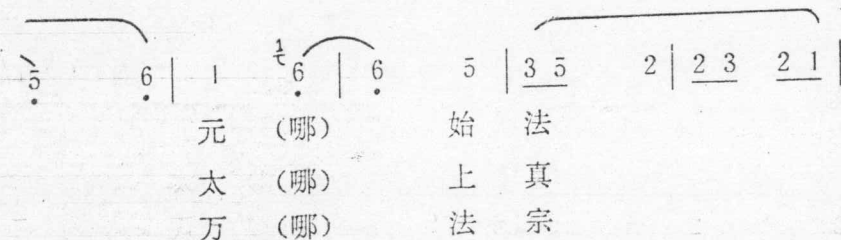 5 6 | 1 6 | 6 5 | 3 5 2 | 2 3 2 1 |
元 (哪) 始 法
太 (哪) 上 真
万 (哪) 法 宗